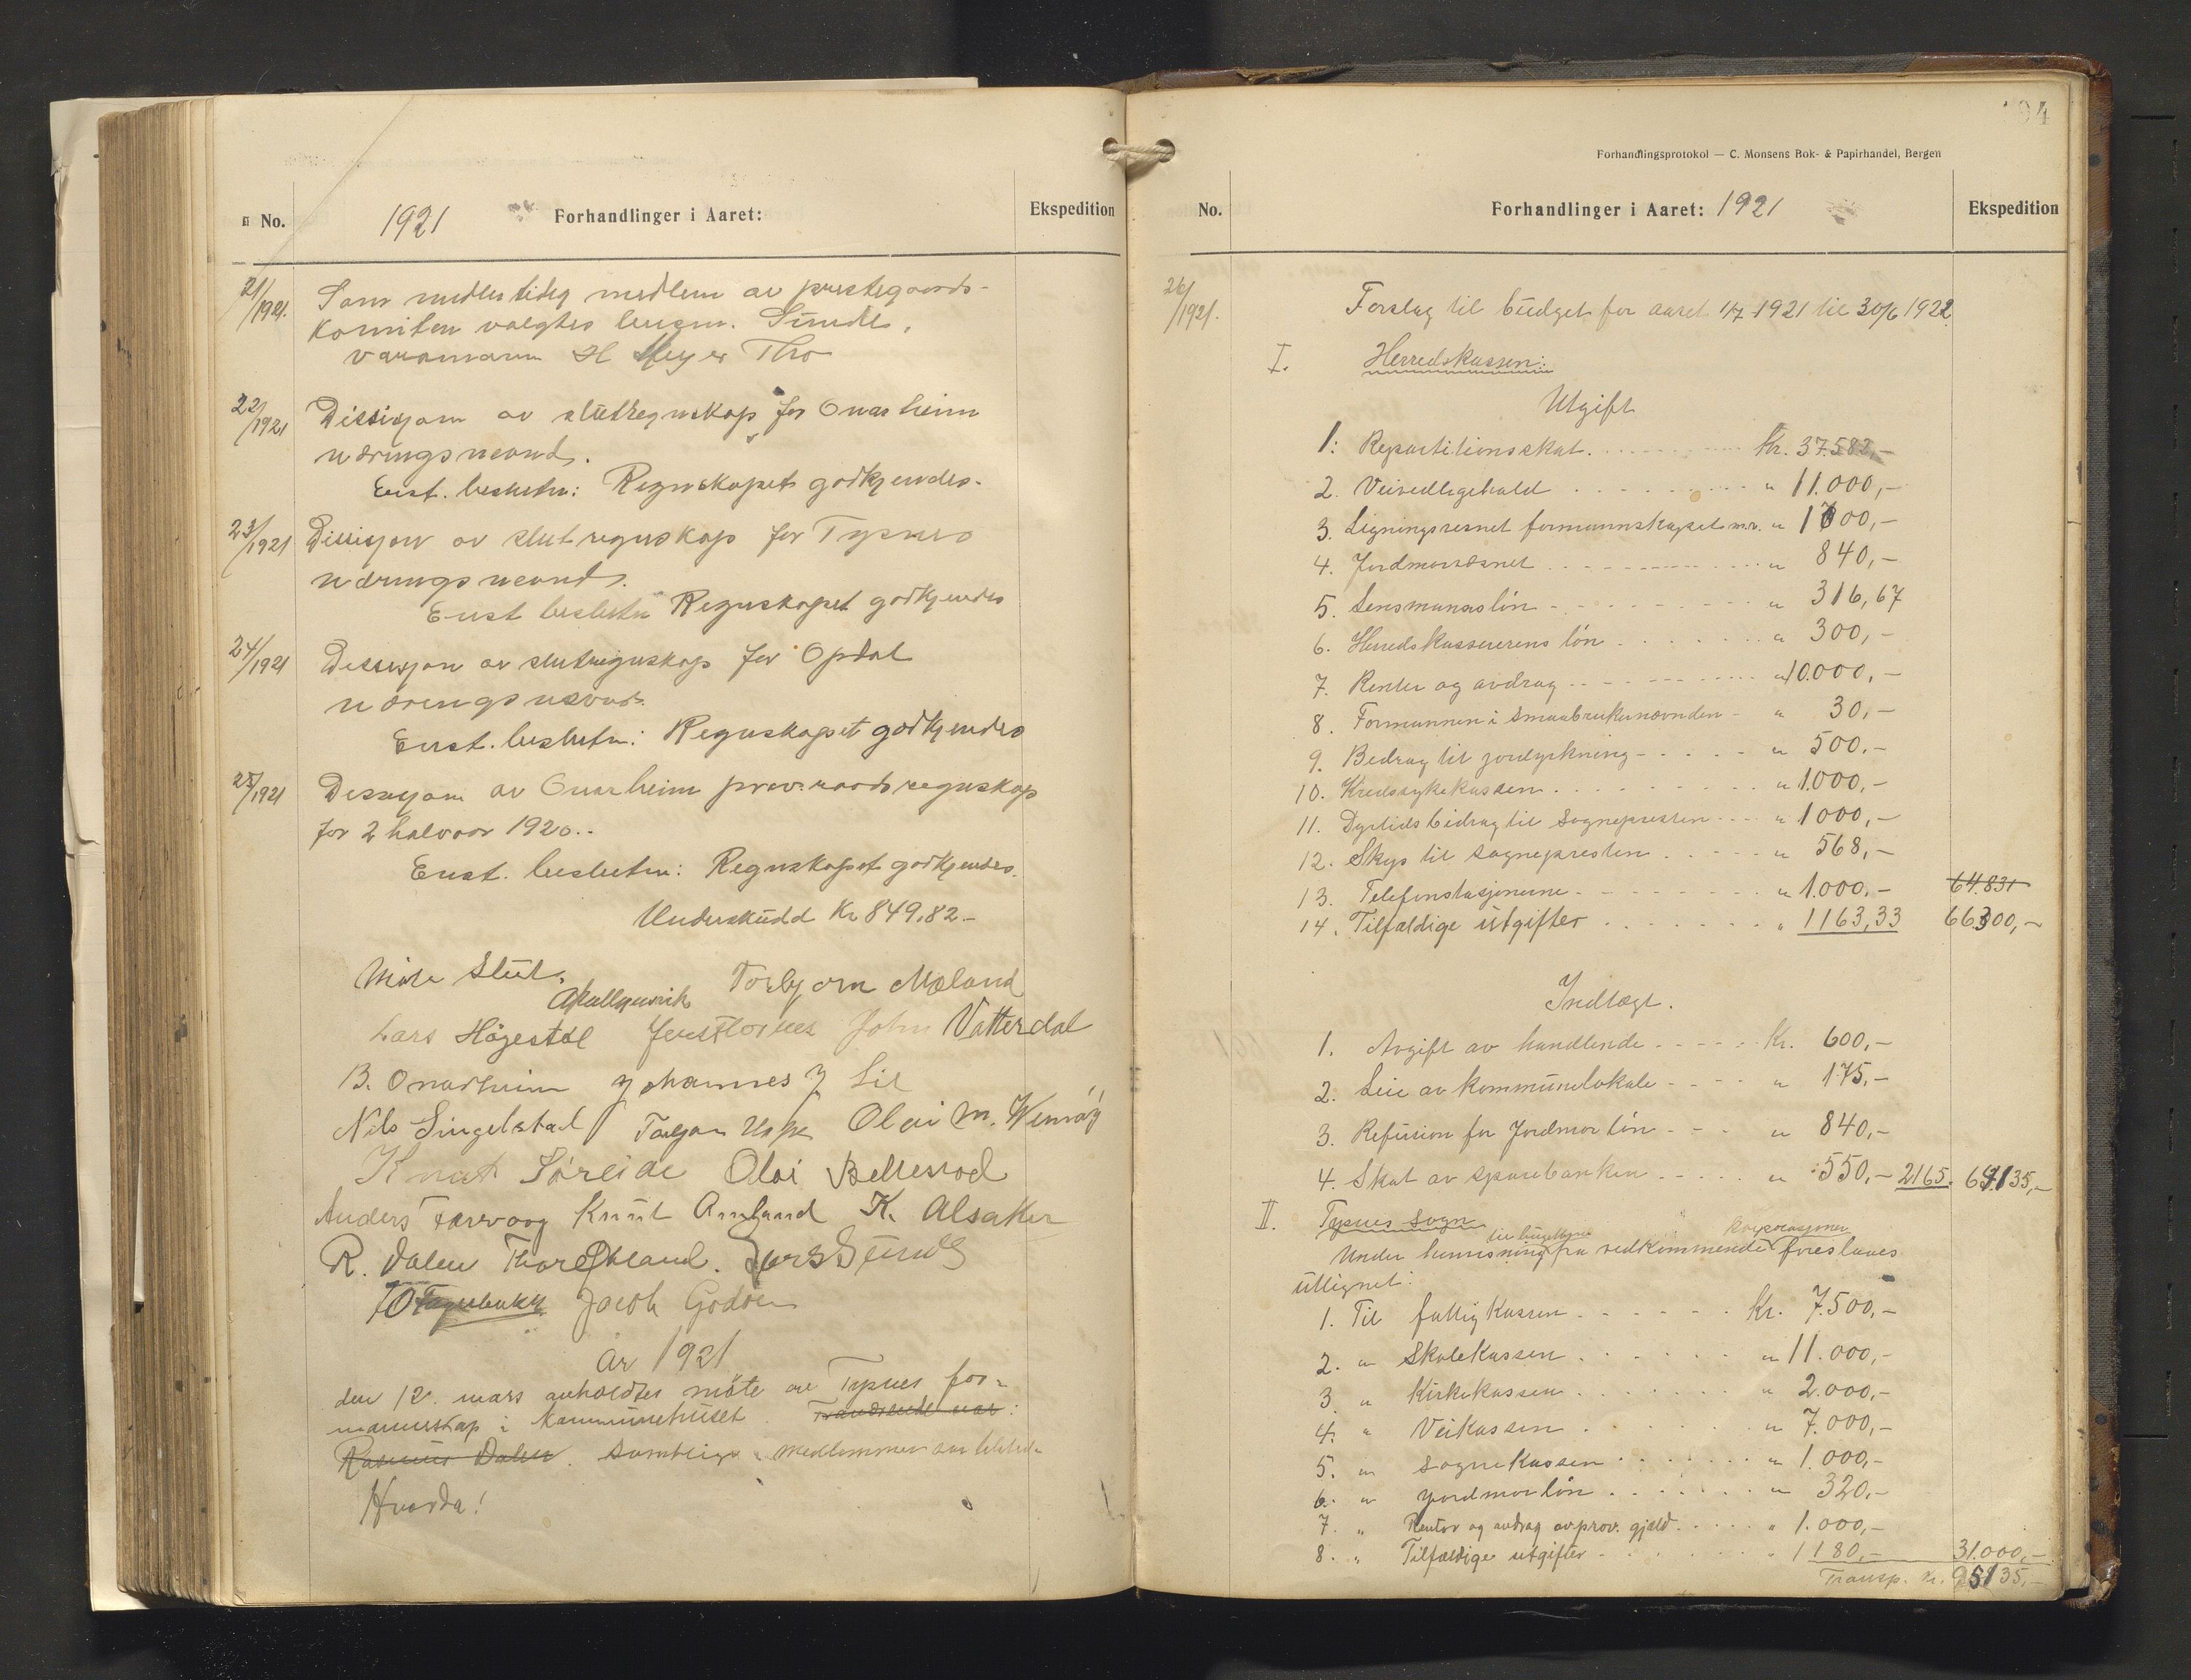 No.
1921
Forhandlinger i Aaret:
Ekspedition
21/1921. Som midlertidig medlem av prestegaards-
komiteen valgtes lensm. Sunde,
varamann H Meyer Tho
22/1921 Dessisjon av slutregnskap for Onarheim
næringsnevnd.
Enst. beslutn: Regnskapet godkjendes.
23/1921 Dessisjon av slutregnskap for Tysnes
næringsnevnd.
Enst beslutn Regnskapet godkjendes
24/1921 Dessisjon av slutregnskap for Opdal
næringsnevnd.
Enst. beslutn: Regnskapet godkjendes
25/1921 Dessisjon av Onarheim prov. raads regnskap
for 2 halvaar 1920.
Enst. beslutn: Regnskapet godkjendes.
Underskudd Kr 849,82.-
Møte Slut.
Torbjørn Mæland
Lars Høgestøl John Vatterdal
B. Onarheim Johannes J Lie
Nils Singelstad Olai M. Wernøy
Knut Søreide Olai
Anders Færvaag Knut K. Alsaker
R. Dalen Lars Sunde
Jacob Godøen
År 1921
den 12. mars avholdtes møte av Tysnes for-
mannskap i Kommunehuset. Fraværende var:
Rasmus Dalen. Samtlige medlemmer var tilstede
Hvorda!
194
Forhandlingsprotokol — C. Monsens Bok- & Papirhandel, Bergen
No.
Forhandlinger i Aaret: 1921
Ekspedition
26/1921. Forslag til budget for aaret 1/7 1921 til 30/6 1922.
I. Herredskassen:
Utgift
1: Repartitionsskat. Kr. 37.582,-
2. Veivedligehald " 11.000,-
3. Ligningsvesnet formannskapet m.v. " 1000,-
4. Jordmorvæsnet " 840,-
5. Lensmannsløn " 316,67
6. Herredskassererens løn " 300,-
7. Renter og avdrag " 10.000,-
8. Formannen i Smaabrukernævnden " 30,-
9. Bedrag til jordyrkning " 500.-
10. Kredssykekassen " 1.000,-
11. Dyrtidsbidrag til Sognepresten " 1000,-
12. Skys til sognepresten " 568,-
13. Telefonstasjonerne " 1.000,- 64.831
14. Tilfældige utgifter " 1163,33 66300,-
Indtægt.
1. Avgift av handlende Kr. 600,-
2. Leie av kommunelokale " 175,-
3. Refusion for Jordmorløn " 840,-
4. Skat av sparebanken " 550,- 2165. 64135,-
II. Tysnes sogn
til budgettene korporasjoner
Under henvisning fra vedkommende foreslaaes
utlignet:
1. Til fattigkassen Kr. 7.500,-
2. " Skolekassen " 11.000,-
3 " Kirkekassen " 2.000,-
4. " Veikassen " 7.000,-
5. " Sognekassen " 1.000,-
6. " Jordmorløn " 320,-
7. " Renter og avdrag av prov. gjæld " 1.000,-
8. " Tilfældige utgifter " 1180,- 31.000,-
Transp. Kr. 95135,-